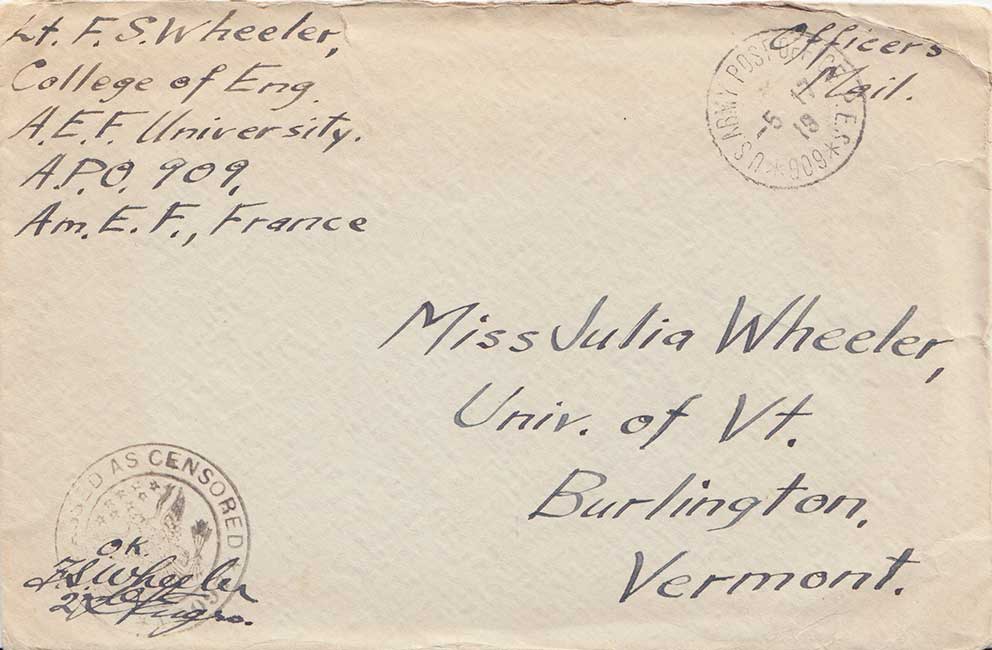 Lt. F. S. Wheeler,
College of Eng.
A.E.F. University.
A.P.O. 909,
Am. E. F., France
Officers
Mail.
U.S. ARMY POST OFFICE M.P.E.S.
* 909 *
-5 17
19
Miss Julia Wheeler,
Univ. of Vt.
Burlington,
Vermont.
PASSED AS CENSORED
O.K.
F.S. Wheeler
2nd Lt. Engrs.